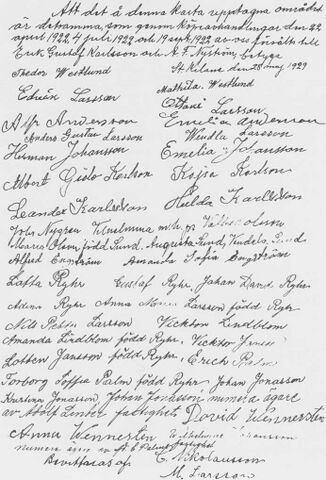 Att det å denna karta upptagna området
är detsamma, som genom köpeavhandlingar den 22
april 1922, 4 juli 1929 och 19 sept 1922 av oss försålts till
Erik Gustaf Karlsson och K. F. Nyström, betyga
St Kilane den 28 maj 1929
Fredor Westlund Mathilda Westlund
Edvin Larsson Larsson
Alf Andersson Emelia Andersson
Anders Gustav Larsson Wendla Larsson
Herman Johansson Emelia Johansson
Albert Gido Karlson Kajsa Karlson
Leander Karlsson Hulda Karlsson
John Nygren Vilhelmina
Olson, född Lund, Augusta Lund, Vendela Lund
Alfred Engström Amanda Sofia Engström
Lotta Ryhr Gustaf Ryhr, Johan David Ryhr,
Adina Ryhr Anna Larsson född Ryhr
Nils Petter Larsson Vicktor Lindblom
Amanda Lindblom född Ryhr, Vicktor
Lotten Jansson född Ryhr, Erich Palm
Torborg Soffia Palm född Ryhr. Johan Jonasson
Kristina Jonasson, Johan Jonasson numera ägare
av Adolf fastighet. David Wennersten
Anna Wennersten Vilhelmina
numera ägare av fastighet
Bevittnas af C. Nikolausson
M. Larsson